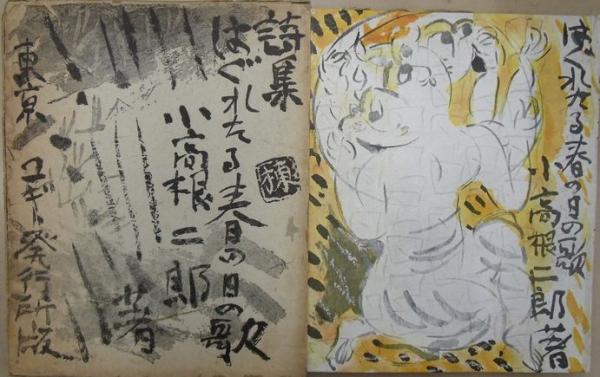 詩集
はぐれたる春の日の歌
小高根二郎
著
棟
東京 コギト発行所版
はぐれたる春の日の歌
小高根二郎著